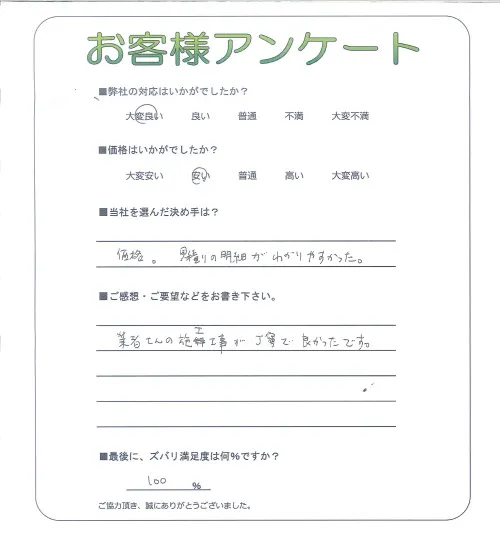 お客様アンケート
■弊社の対応はいかがでしたか？
大変良い 良い 普通 不満 大変不満
■価格はいかがでしたか？
大変安い 安い 普通 高い 大変高い
■当社を選んだ決め手は？
価格。見積りの明細がわかりやすかった。
■ご感想・ご要望などをお書き下さい。
業者さんの施工工事が丁寧で良かったです。
■最後に、ズバリ満足度は何%ですか？
100 %
ご協力頂き、誠にありがとうございました。